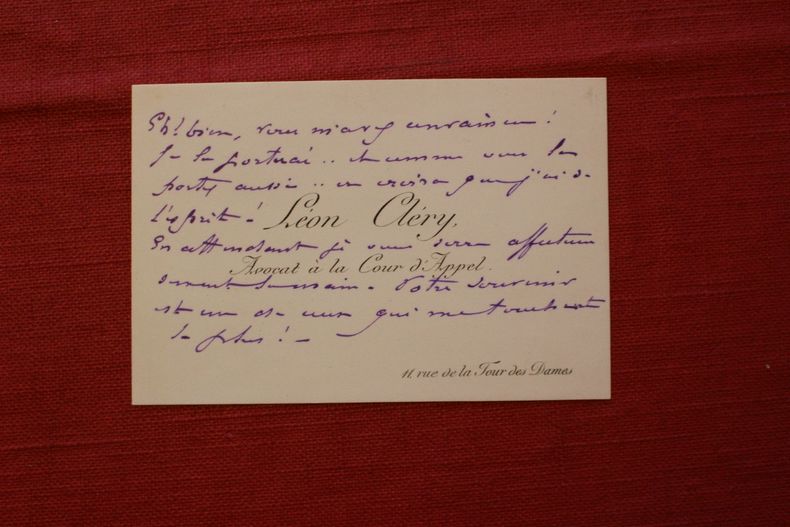 Eh! bien, vous m'avez convaincu!
Je le porterai .. et comme vous le
portez aussi .. on croira que j'ai de
l'esprit!
Léon Cléry,
En attendant je vous serre affectueu
Avocat à la Cour d'Appel.
sement la main. Votre souvenir
est un de ceux qui me touchent
le plus! _
11, rue de la Tour des Dames